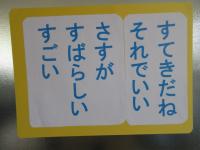 すてきだね
それでいい
さすが
すばらしい
すごい